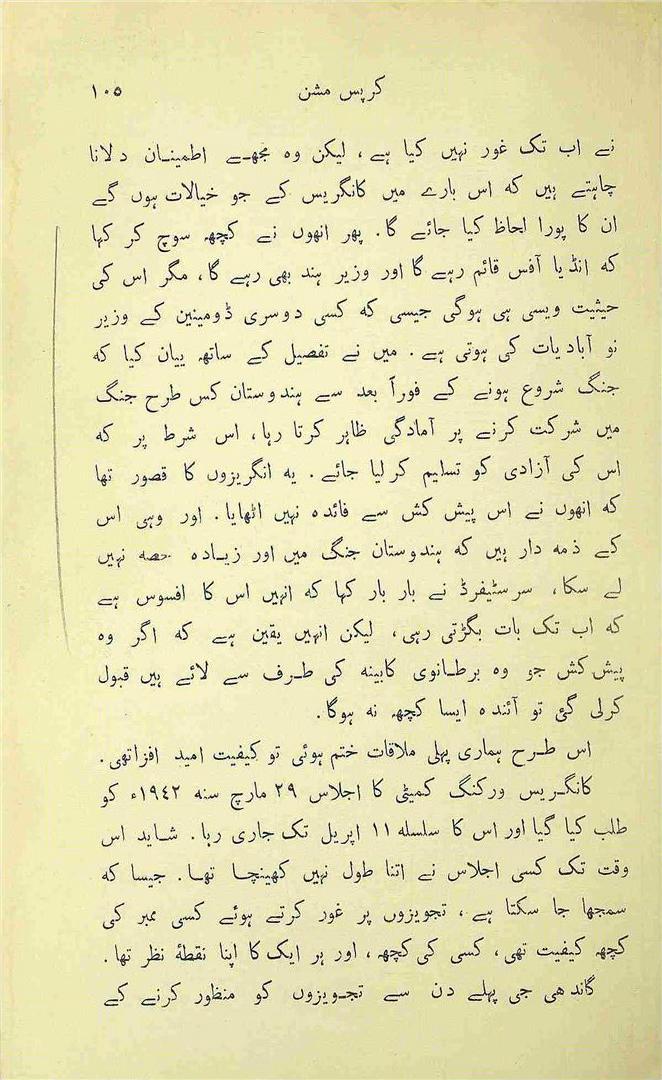 کرپس مشن ۱۰۵
نے اب تک غور نہیں کیا ہے، لیکن وہ مجھے اطمینان دلانا
چاہتے ہیں کہ اس بارے میں کانگریس کے جو خیالات ہوں گے
ان کا پورا لحاظ کیا جائے گا. پھر انھوں نے کچھ سوچ کر کہا
کہ انڈیا آفس قائم رہے گا اور وزیر ہند بھی رہے گا، مگر اس کی
حیثیت ویسی ہی ہوگی جیسی کہ کسی دوسری ڈومینین کے وزیر
نو آبادیات کی ہوتی ہے. میں نے تفصیل کے ساتھ بیان کیا کہ
جنگ شروع ہونے کے فوراً بعد سے ہندوستان کس طرح جنگ
میں شرکت کرنے پر آمادگی ظاہر کرتا رہا، اس شرط پر کہ
اس کی آزادی کو تسلیم کرلیا جائے. یہ انگریزوں کا قصور تھا
کہ انھوں نے اس پیش کش سے فائدہ نہیں اٹھایا. اور وہی اس
کے ذمہ دار ہیں کہ ہندوستان جنگ میں اور زیادہ حصہ نہیں
لے سکا، سرسٹیفرڈ نے بار بار کہا کہ انہیں اس کا افسوس ہے
کہ اب تک بات بگڑتی رہی، لیکن انہیں یقین ہے کہ اگر وہ
پیش کش جو وہ برطانوی کابینہ کی طرف سے لائے ہیں قبول
کرلی گئی تو آئندہ ایسا کچھ نہ ہوگا.
اس طرح ہماری پہلی ملاقات ختم ہوئی تو کیفیت امید افزاتھی.
کانگریس ورکنگ کمیٹی کا اجلاس ۲۹ مارچ سنہ ۱۹٤۲ء کو
طلب کیا گیا اور اس کا سلسلہ ۱۱ اپریل تک جاری رہا. شاید اس
وقت تک کسی اجلاس نے اتنا طول نہیں کھینچا تھا. جیسا کہ
سمجھا جا سکتا ہے، تجویزوں پر غور کرتے ہوئے کسی ممبر کی
کچھ کیفیت تھی، کسی کی کچھ، اور ہر ایک کا اپنا نقطۂ نظر تھا.
گاندھی جی پہلے دن سے تجویزوں کو منظور کرنے کے